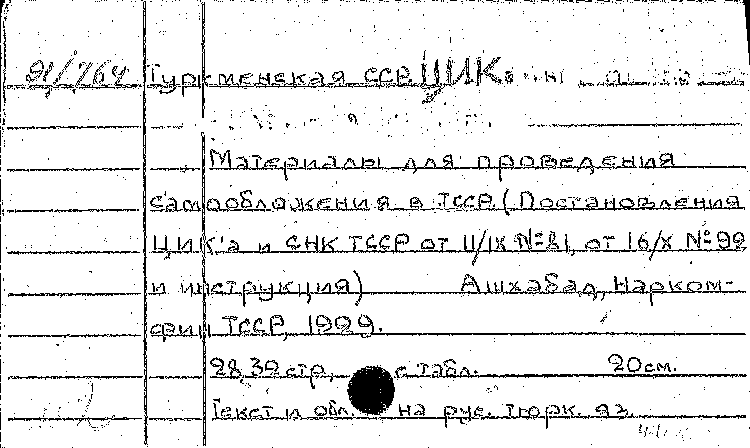 91/764 Туркменская ССР. ЦИК.
Материалы для проведения
самообложения в ТССР (Постановления
ЦИК'а и СНК ТССР от 11/IX №81, от 16/X №92
и инструкция) Ашхабад, Нарком-
фин ТССР, 1929.
28,32 стр, с табл. 20 см.
Текст и обл. на рус. тюрк. яз.